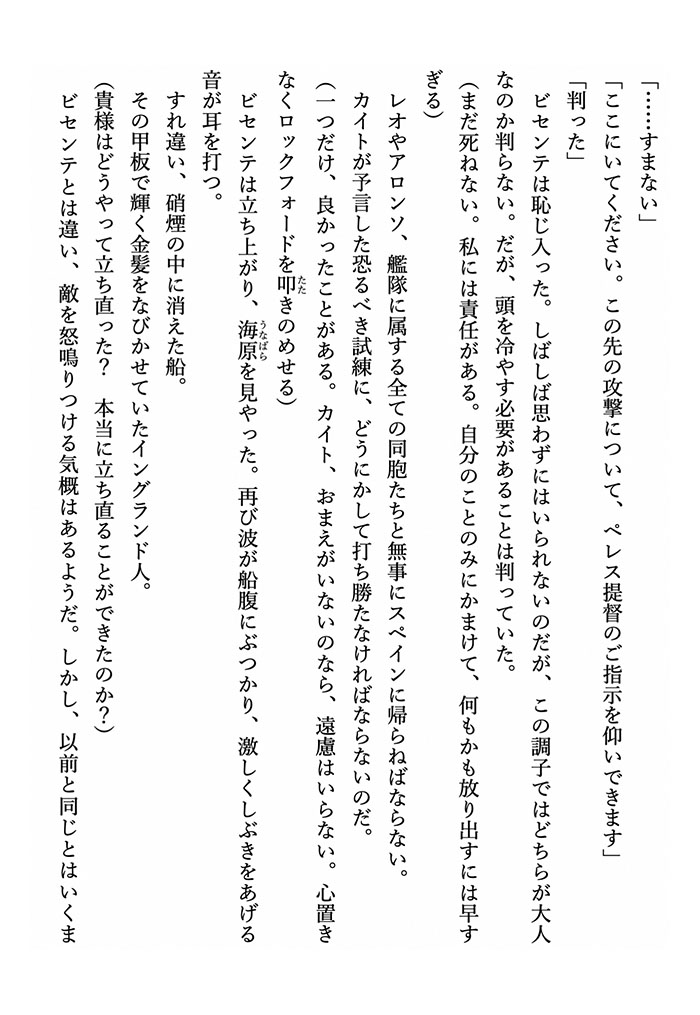 「……すまない」
「ここにいてください。この先の攻撃について、ペレス提督のご指示を仰いできます」
「判った」
ビセンテは恥じ入った。しばしば思わずにはいられないのだが、この調子ではどちらが大人
なのか判らない。だが、頭を冷やす必要があることは判っていた。
(まだ死ねない。私には責任がある。自分のことのみにかまけて、何もかも放り出すには早す
ぎる)
レオやアロンソ、艦隊に属する全ての同胞たちと無事にスペインに帰らねばならない。
カイトが予言した恐るべき試練に、どうにかして打ち勝たなければならないのだ。
(一つだけ、良かったことがある。カイト、おまえがいないのなら、遠慮はいらない。心置き
なくロックフォードを叩きのめせる)
ビセンテは立ち上がり、海原を見やった。再び波が船腹にぶつかり、激しくしぶきをあげる
音が耳を打つ。
すれ違い、硝煙の中に消えた船。
その甲板で輝く金髪をなびかせていたイングランド人。
(貴様はどうやって立ち直った？　本当に立ち直ることができたのか？)
ビセンテとは違い、敵を怒鳴りつける気概はあるようだ。しかし、以前と同じとはいくま